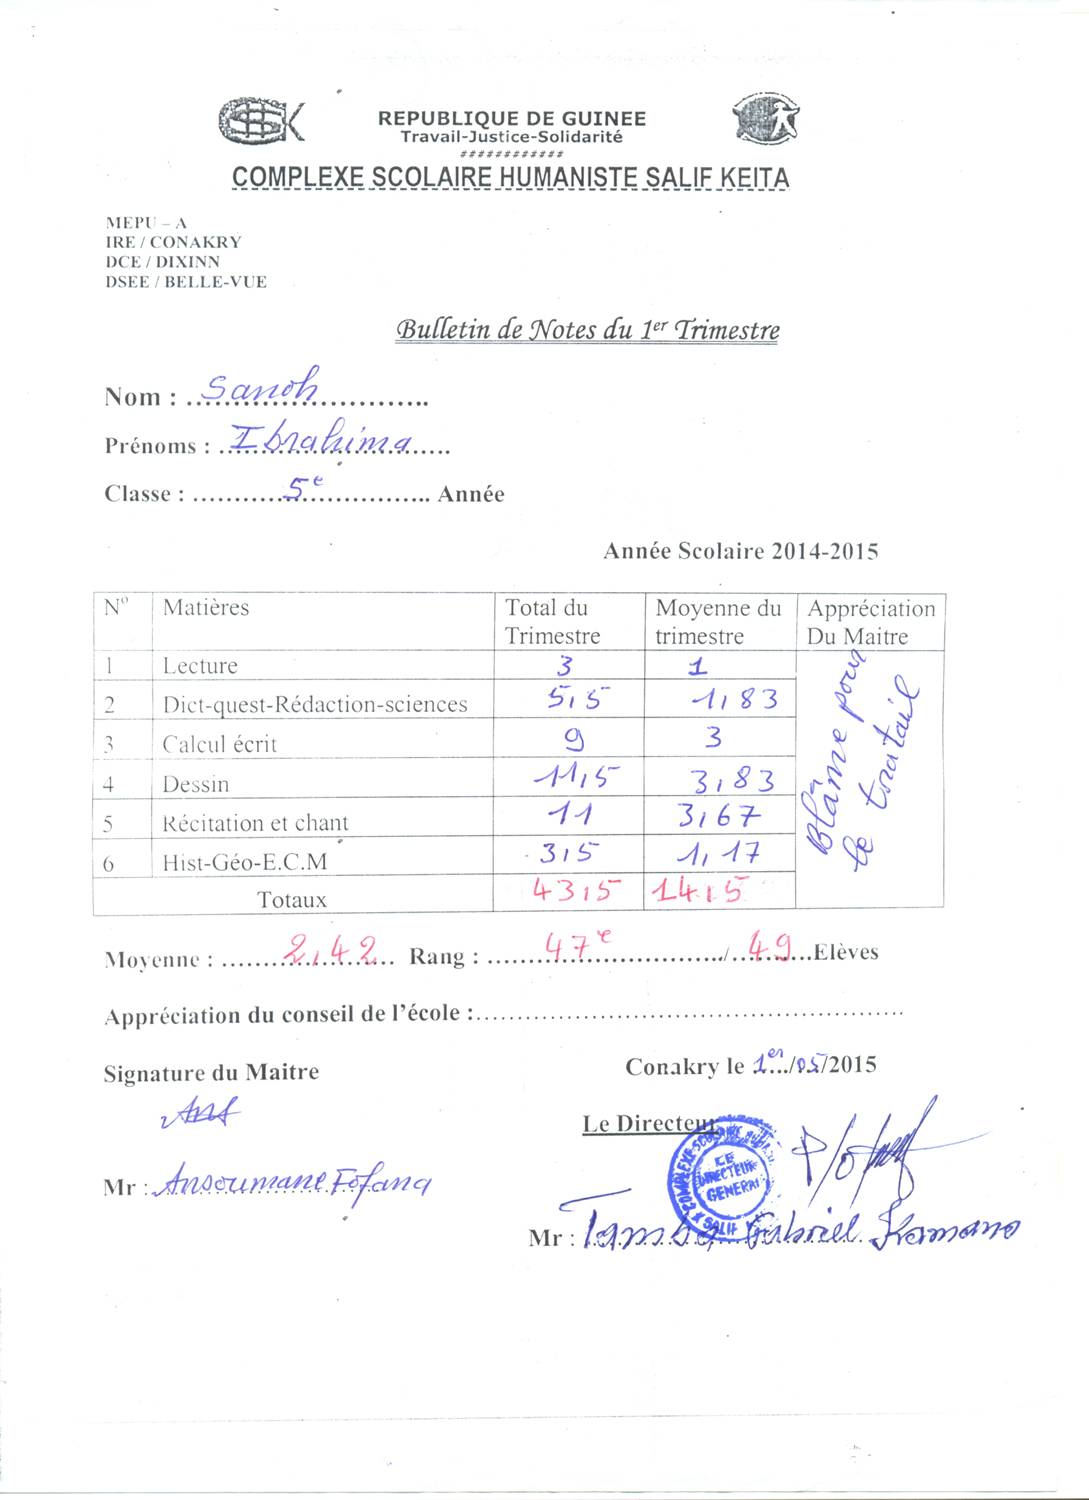 REPUBLIQUE DE GUINEE
Travail-Justice-Solidarité
############
COMPLEXE SCOLAIRE HUMANISTE SALIF KEITA
MEPU – A
IRE / CONAKRY
DCE / DIXINN
DSEE / BELLE-VUE
Bulletin de Notes du 1er Trimestre
Nom : Sanoh
Prénoms : Ibrahima
Classe : 5e Année
Année Scolaire 2014-2015
N° Matières Total du Trimestre Moyenne du trimestre Appréciation Du Maitre
1 Lecture 3 1
2 Dict-quest-Rédaction-sciences 5,5 1,83
3 Calcul écrit 9 3
4 Dessin 11,5 3,83
5 Récitation et chant 11 3,67
6 Hist-Géo-E.C.M 3,5 1,17
Blâme pour
le tratail
Totaux 43,5 14,5
Moyenne : 2,42 Rang : 47e / 49 Elèves
Appréciation du conseil de l'école :
Signature du Maitre
Conakry le 1er/05/2015
Le Directeur
COMPLEXE SCOLAIRE
LE
DIRECTEUR
GENERAL
SALIF
Mr : Ansoumane Fofana
Mr : Tamba Gabriel Kamano